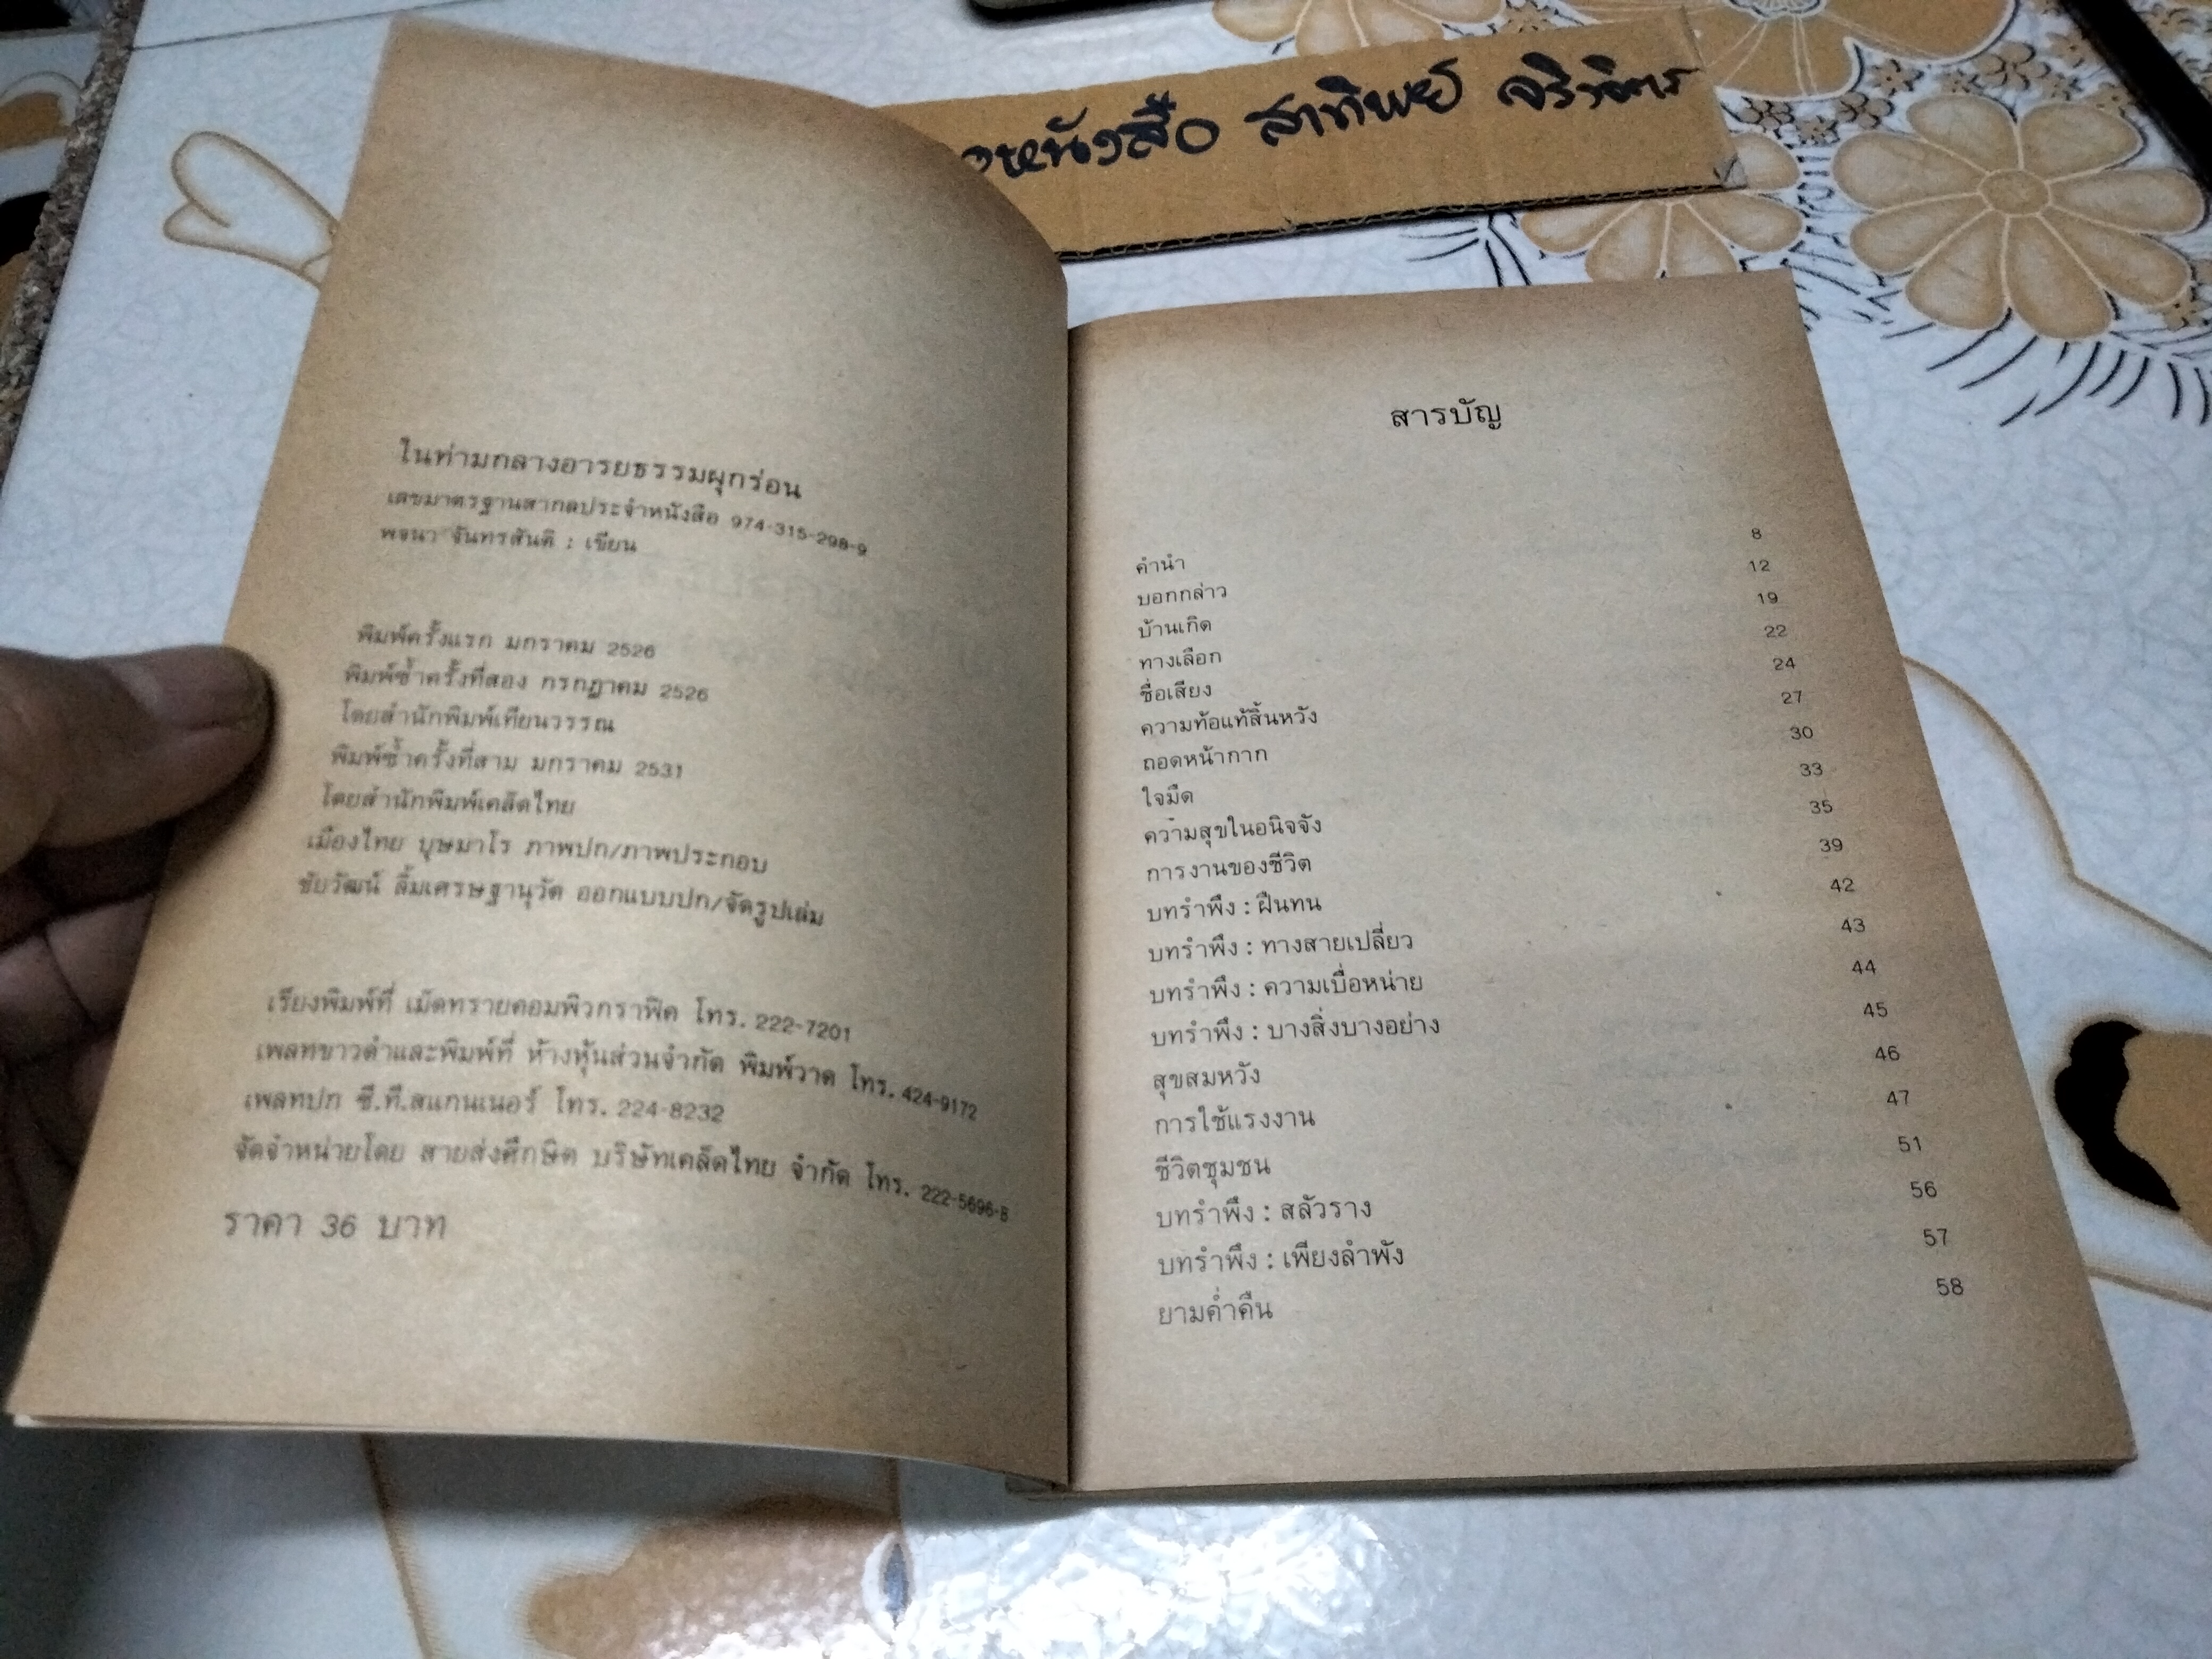 หนังสือ สาทิพย์ จริวิตร
ในท่ามกลางอารยธรรมผุกร่อน
เลขมาตรฐานสากลประจำหนังสือ 974-315-298-9
พจนา จันทรสันติ : เขียน
พิมพ์ครั้งแรก มกราคม 2526
พิมพ์ซ้ำครั้งที่สอง กรกฎาคม 2526
โดยสำนักพิมพ์เทียนวรรณ
พิมพ์ซ้ำครั้งที่สาม มกราคม 2531
โดยสำนักพิมพ์เคล็ดไทย
เมืองไทย บุษมาโร ภาพปก/ภาพประกอบ
ชัยวัฒน์ ลิ้มเศรษฐานุวัต ออกแบบปก/จัดรูปเล่ม
เรียงพิมพ์ที่ เม็ดทรายคอมพิวกราฟิค โทร. 222-7201
เพลทขาวดำและพิมพ์ที่ ห้างหุ้นส่วนจำกัด พิมพ์วาด โทร. 424-9172
เพลทปก ซี.ที.สแกนเนอร์ โทร. 224-8232
จัดจำหน่ายโดย สายส่งศึกษิต บริษัทเคล็ดไทย จำกัด โทร. 222-5696-8
ราคา 36 บาท
สารบัญ
คำนำ 8
บอกกล่าว 12
บ้านเกิด 19
ทางเลือก 22
ชื่อเสียง 24
ความท้อแท้สิ้นหวัง 27
ถอดหน้ากาก 30
ใจมืด 33
ความสุขในอนิจจัง 35
การงานของชีวิต 39
บทรำพึง : ฝืนทน 42
บทรำพึง : ทางสายเปลี่ยว 43
บทรำพึง : ความเบื่อหน่าย 44
บทรำพึง : บางสิ่งบางอย่าง 45
สุขสมหวัง 46
การใช้แรงงาน 47
ชีวิตชุมชน 51
บทรำพึง : สลัวราง 56
บทรำพึง : เพียงลำพัง 57
ยามค่ำคืน 58